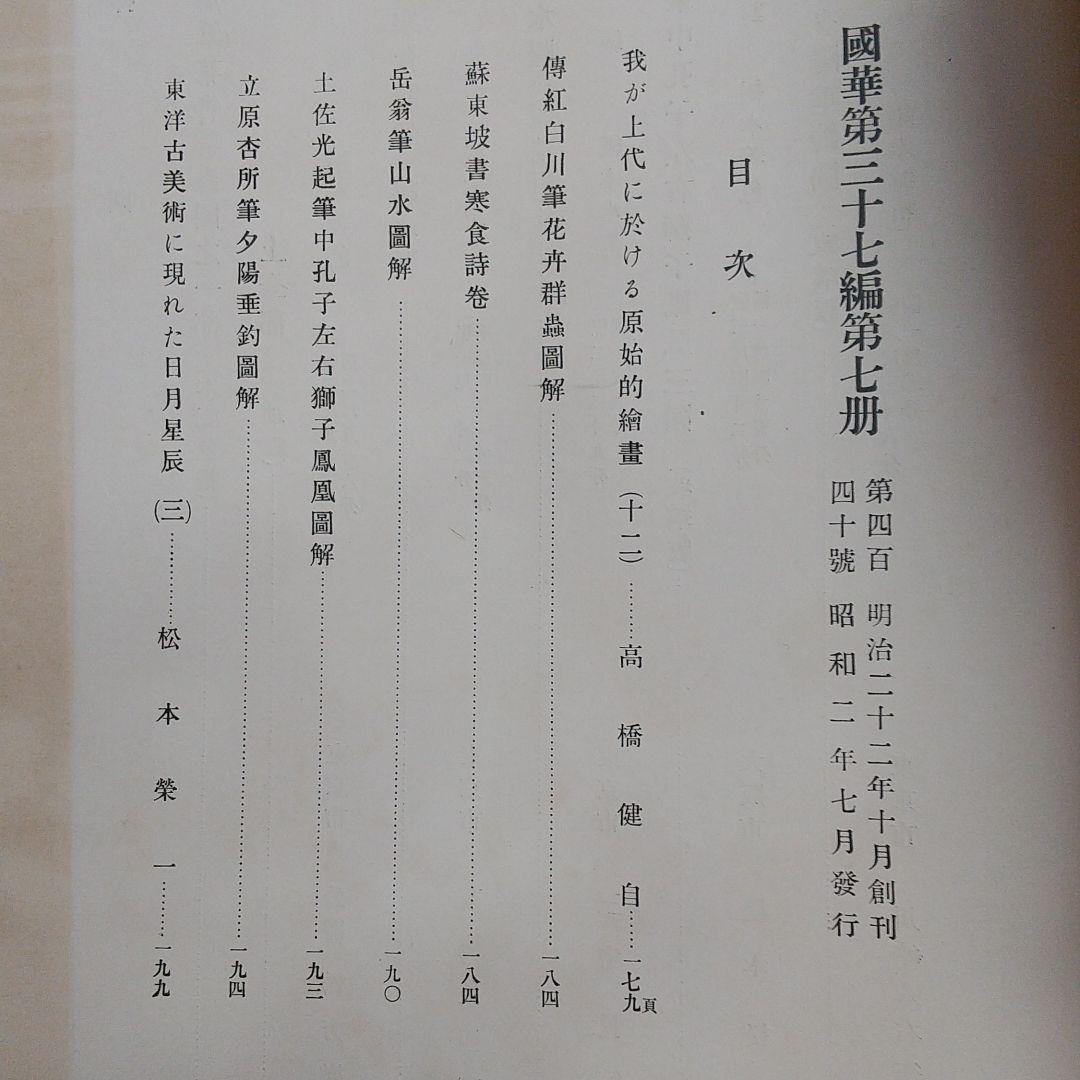 國華第三十七編第七册
第四百 明治二十二年十月創刊
四十號 昭和二年七月發行
目次
我が上代に於ける原始的繪畫(十二)………高橋健自……一七九頁
傳紅白川筆花卉群蟲圖解………一八四
蘇東坡書寒食詩卷………一八四
岳翁筆山水圖解………一九〇
土佐光起筆中孔子左右獅子鳳凰圖解………一九三
立原杏所筆夕陽垂釣圖解………一九四
東洋古美術に現れた日月星辰(三)………松本榮一………一九九